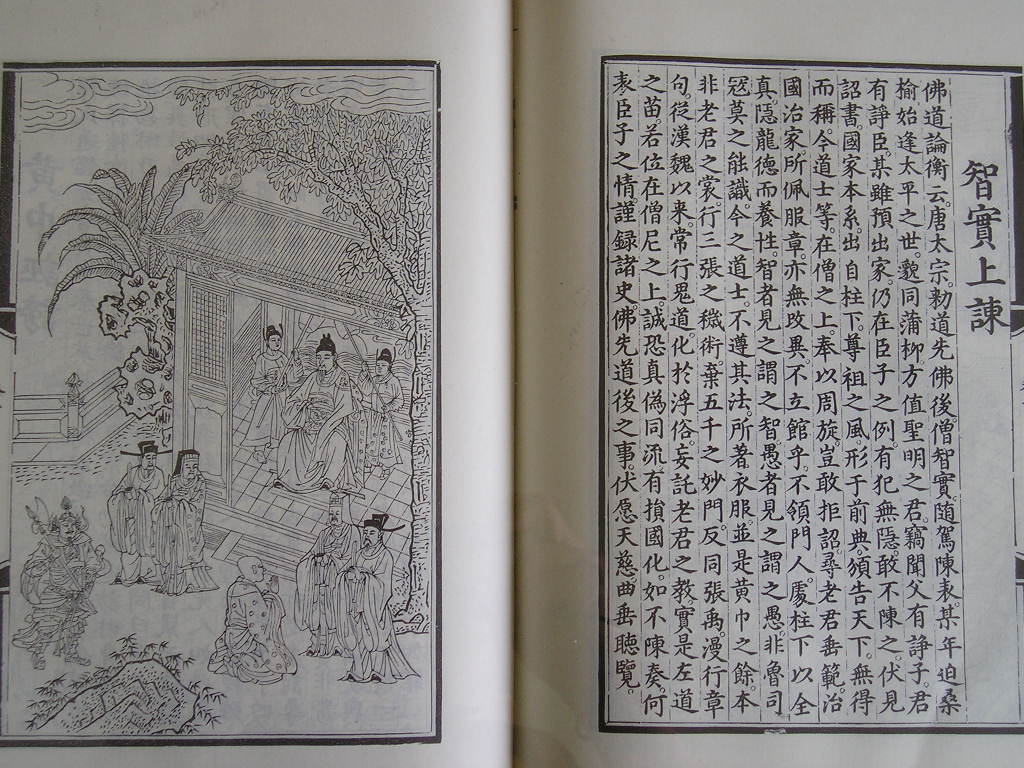 智實上諫
佛道論衡云。唐太宗。勑道先佛後。僧智實。隨駕陳表。某年迫桑
榆。始逢太平之世。貌同蒲柳。方值聖明之君。竊聞父有諍子。君
有諍臣。某雖預出家。仍在臣子之例。有犯無隱。敢不陳之。伏見
詔書。國家本系。出自柱下。尊祖之風。形于前典。頒告天下。無得
而稱。今道士等。在僧之上。奉以周旋。豈敢拒詔。尋老君垂範。治
國治家。所佩服章。亦無改異。不立館乎。不領門人。處柱下以全
真。隱龍德而養性。智者見之謂之智。愚者見之謂之愚。非魯司
冦莫之能識。今之道士。不遵其法。所著衣服。並是黃巾之餘。本
非老君之裳。行三張之穢術。棄五千之妙門。反同張禹。漫行章
句。從漢魏以來。常行鬼道。化於浮俗。妄託老君之教。實是左道
之苗。若位在僧尼之上。誠恐真偽同流。有損國化。如不陳奏。何
表臣子之情。謹録諸史。佛先道後之事。伏愿天慈。曲垂聽覽。